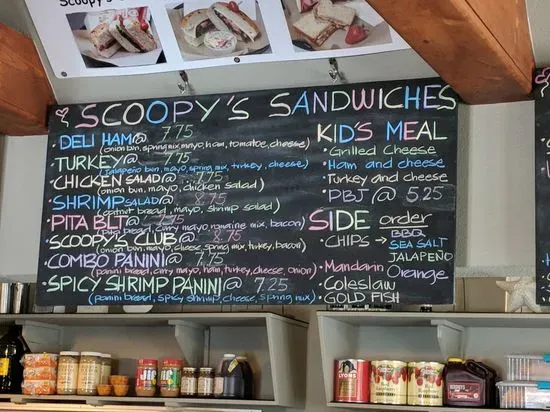 Scoopy's
SCOOPY'S SANDWICHES
DELI HAM @ 7.75
(onion bun, spring mix, mayo, ham, tomatoe, cheese)
TURKEY @ 7.75
(Jalapeño bun, mayo, spring mix, turkey, cheese)
CHICKEN SALAD @ 7.75
(onion bun, mayo, chicken salad)
SHRIMP SALAD @ 8.75
bread, mayo, shrimp salad)
PITA BLT @ 7.75
(pita bread, curry mayo, romaine mix, bacon)
SCOOPY'S CLUB @ 8.75
(onion bun, mayo, cheese, spring mix, turkey, bacon)
COMBO PANINI @ 7.75
(panini bread, curry mayo, ham, turkey, cheese, onion)
SPICY SHRIMP PANINI @ 7.25
(panini bread, spicy shrimp, cheese, spring mix)
KID'S MEAL
Grilled Cheese
Ham and cheese
Turkey and cheese
PBJ @ 5.25
SIDE order
CHIPS → BBQ
SEA SALT
JALAPEÑO
Mandarin Orange
Coleslaw
GOLD FISH
LYONS